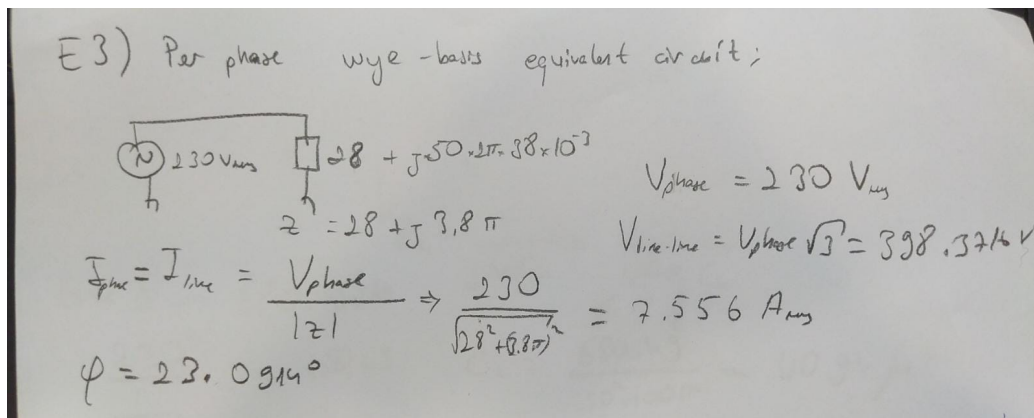 E3) Per phase wye-basis equivalent circuit;
230 Vrms 28 + j·50·2π·38×10⁻³
z = 28 + j 3,8 π
Vphase = 230 Vrms
Vline-line = Vphase √3 = 398.3716 V
Iphase = Iline = Vphase / |z| ⇒ 230 / √(28² + (3.8π)²) = 7.556 Arms
φ = 23.0914°